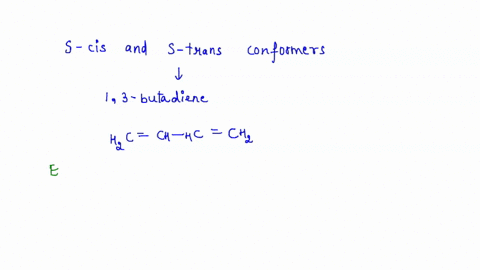 S-cis and S-trans conformers
↓
1,3-butadiene
H2C = CH—HC = CH2
E